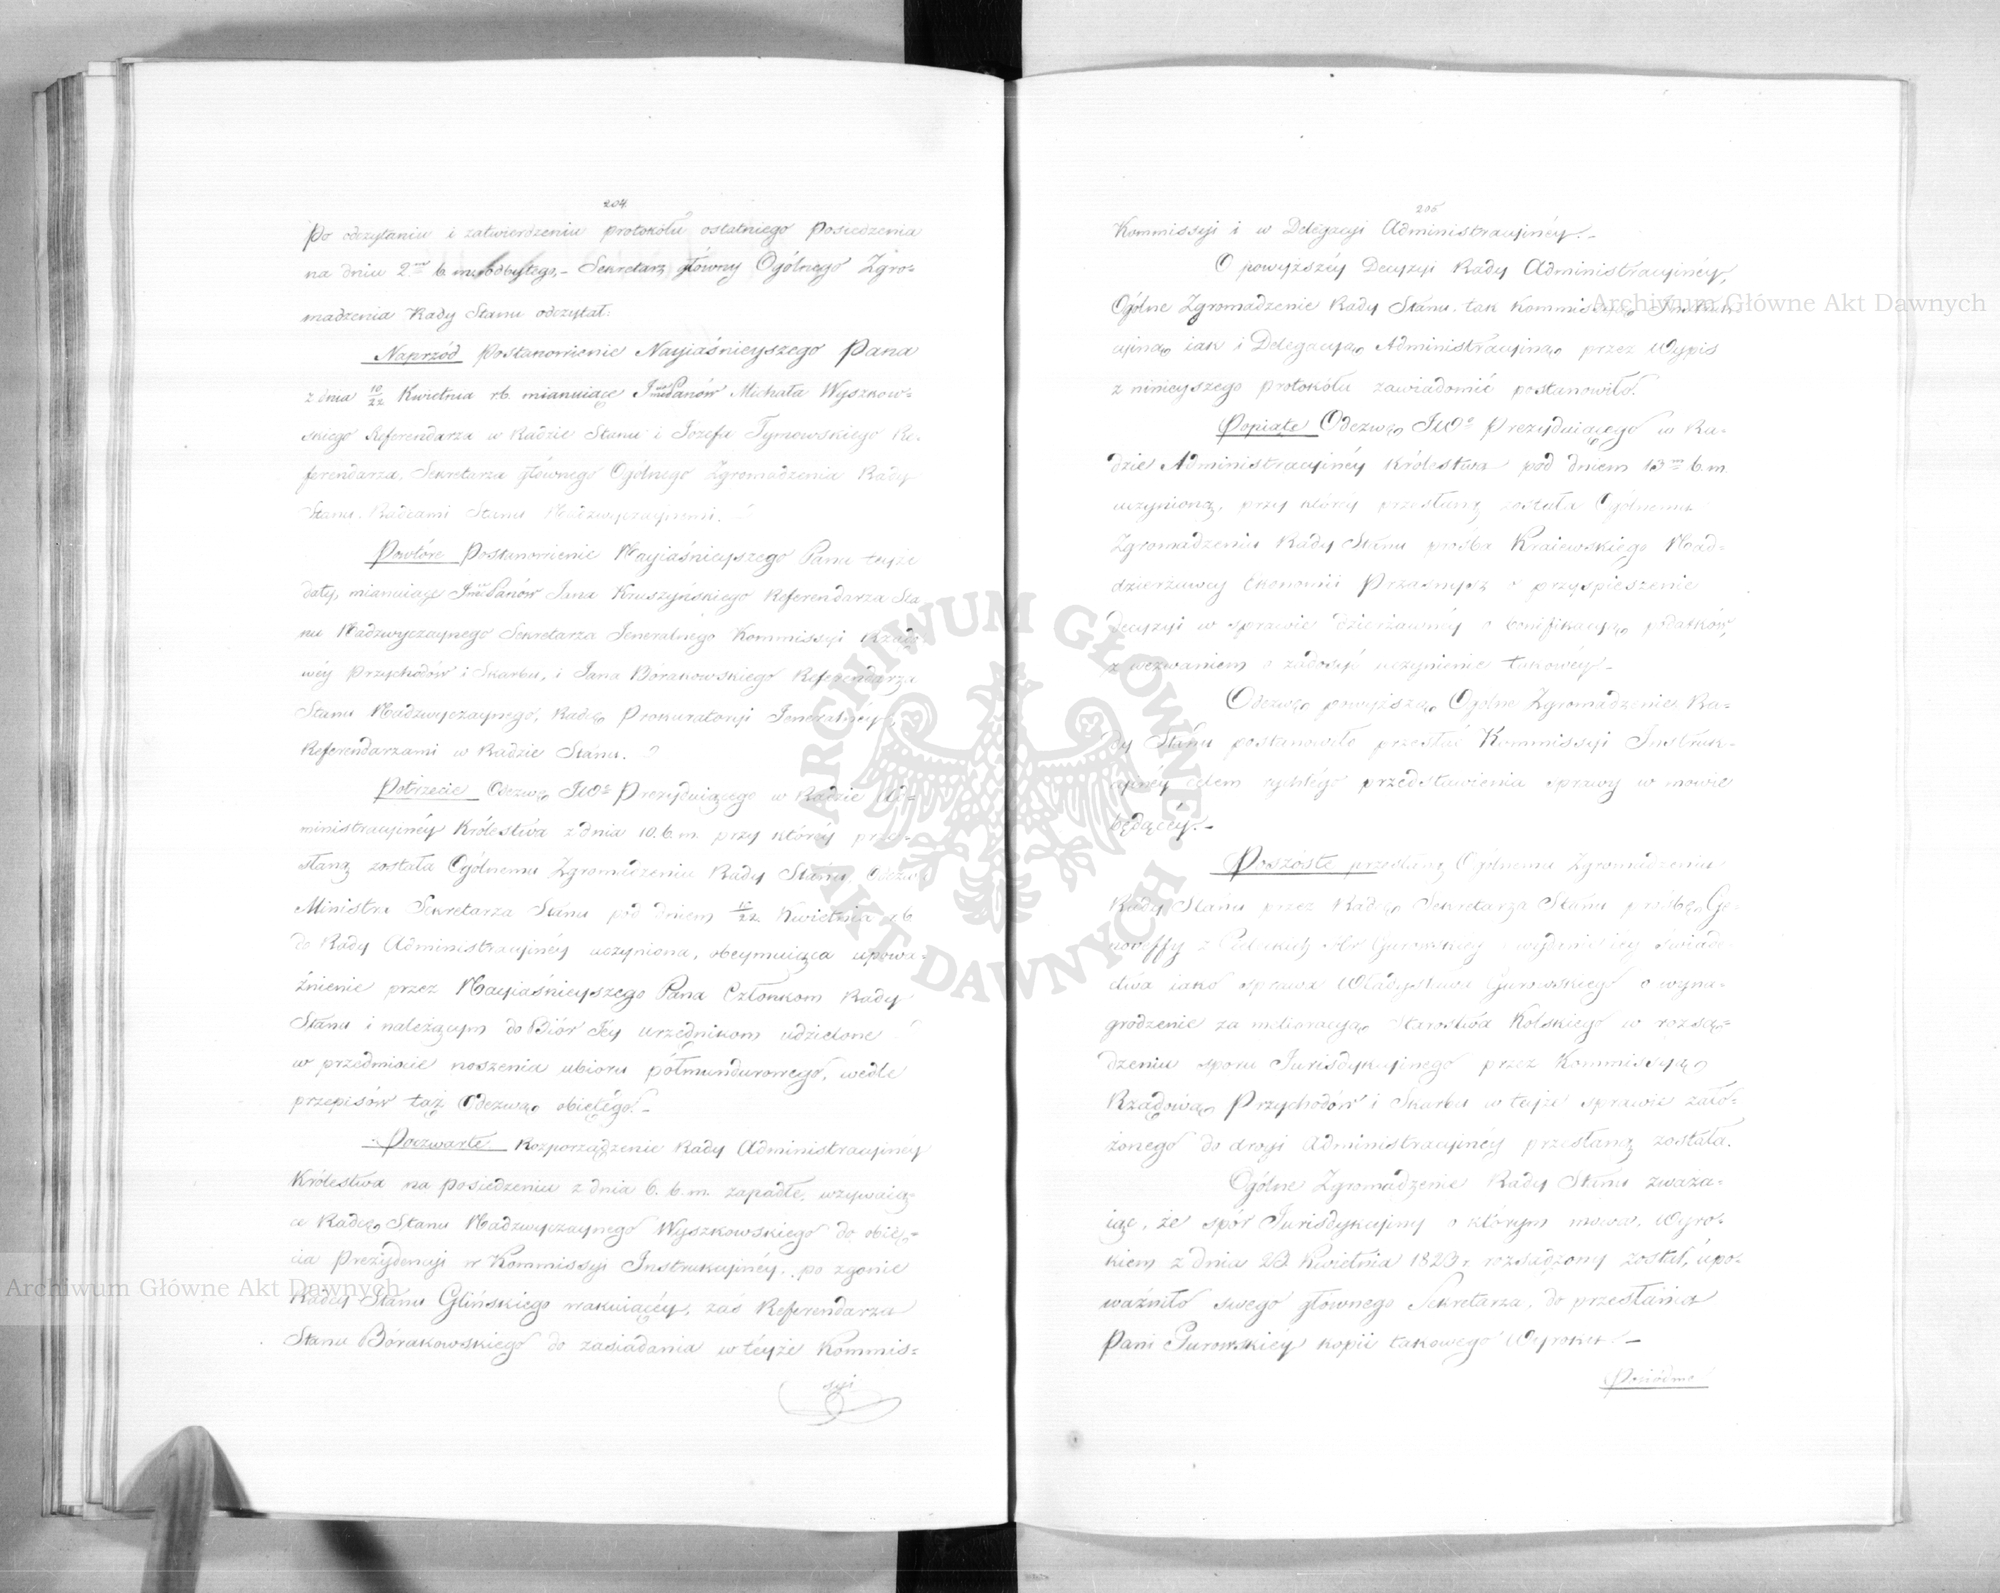 204.
Po odczytaniu i zatwierdzeniu protokółu ostatniego Posiedzenia
na dniu 2. b. m. odbytego, – Sekretarz główny Ogólnego Zgro=
madzenia Rady Stanu odczytał:
Naprzód Postanowienie Nayiaśnieyszego Pana
z dnia 10/22 Kwietnia r. b. mianuiące Panów Michała Wyszkow=
skiego Referendarza w Radzie Stanu i Jozefa Tymowskiego Re=
ferendarza, Sekretarza głównego Ogólnego Zgromadzenia Rady
Stanu, Radcami Stanu Nadzwyczaynemi.
Powtóre Postanowienie Nayiaśnieyszego Pana teyże
daty, mianuiące Panów Jana Kruszyńskiego Referendarza Sta
nu Nadzwyczaynego Sekretarza Jeneralnego Kommissyi Rządo
wéy Przychodów i Skarbu, i Jana Bórakowskiego Referendarza
Stanu Nadzwyczaynego, Radcę Prokuratoryi Jeneralnéy,
Referendarzami w Radzie Stanu.
Potrzecie Odezwę JWo Prezyduiącego w Radzie Ad=
ministracyinéy Królestwa z dnia 10. b. m. przy któréy prze=
słaną została Ogólnemu Zgromadzeniu Rady Stanu, Odezwa
Ministra Sekretarza Stanu pod dniem 10/22 Kwietnia r. b.
do Rady Administracyinéy uczyniona, obeymuiąca upowa=
żnienie przez Nayiaśnieyszego Pana Członkom Rady
Stanu i należącym do Biór Jéy urzędnikom udzielone
w przedmiocie noszenia ubioru półmundurowego, wedle
przepisów taż Odezwą obiętego. –
Poczwarte Rozporządzenie Rady Administracyinéy
Królestwa na posiedzeniu z dnia 6. b. m. zapadłe, wzywaią=
ce Radcę Stanu Nadzwyczaynego Wyszkowskiego do obię=
cia Prezydencyi w Kommissyi Instrukcyinéy, po zgonie
Radcy Stanu Glińskiego wakuiącéy, zaś Referendarza
Stanu Bórakowskiego do zasiadania w teyże Kommis=
syi
205
Kommissyi i w Delegacyi Administracyinéy. –
O powyższéy Decyzyi Rady Administracyinéy,
Ogólne Zgromadzenie Rady Stanu tak Kommissyią Instruk=
cyiną iak i Delegacyią Administracyiną przez Wypis
z ninieyszego protokółu zawiadomić postanowiło.
Popiąte Odezwę JWo Prezyduiącego w Ra=
dzie Administracyinéy Królestwa pod dniem 13 b. m.
uczynioną, przy któréy przesłaną została Ogólnemu
Zgromadzeniu Rady Stanu prośba Kraiewskiego Nad=
dzierżawcy Ekonomii Przasnysz o przyspieszenie
Decyzyi w sprawie dzierżawnéy o bonifikacyią podatków,
z wezwaniem o zadosyć uczynienie takowéy. –
Odezwę powyższą Ogólne Zgromadzenie Ra=
dy Stanu postanowiło przesłać Kommissyi Instruk=
cyinéy celem rychłego przedstawienia sprawy w mowie
będącéy. –
Poszóste przesłaną Ogólnemu Zgromadzeniu
Rady Stanu przez Radcę Sekretarza Stanu prośbę Ge=
noweffy z Hr. Gurowskiéy
iako sprawa Władysława Gurowskiego o wyna=
grodzenie za melioracyią Starostwa Kolskiego w rozsą=
dzeniu sporu Jurisdykcyinego przez Kommissyią
Rządową Przychodów i Skarbu w teyże sprawie zało=
żonego do drogi Administracyinéy przesłaną została.
Ogólne Zgromadzenie Rady Stanu zważa=
iąc, że spór Jurisdykcyiny o którym mowa, Wyro=
kiem z dnia 23 Kwietnia 1823 r. rozsądzony został, upo=
ważniło swego głownego Sekretarza, do przesłania
Pani Gurowskiéy kopii takowego Wyroku. –
Posiódme
Archiwum Główne Akt Dawnych
Archiwum Główne Akt Dawnych
ARCHIWUM GŁÓWNE AKT DAWNYCH